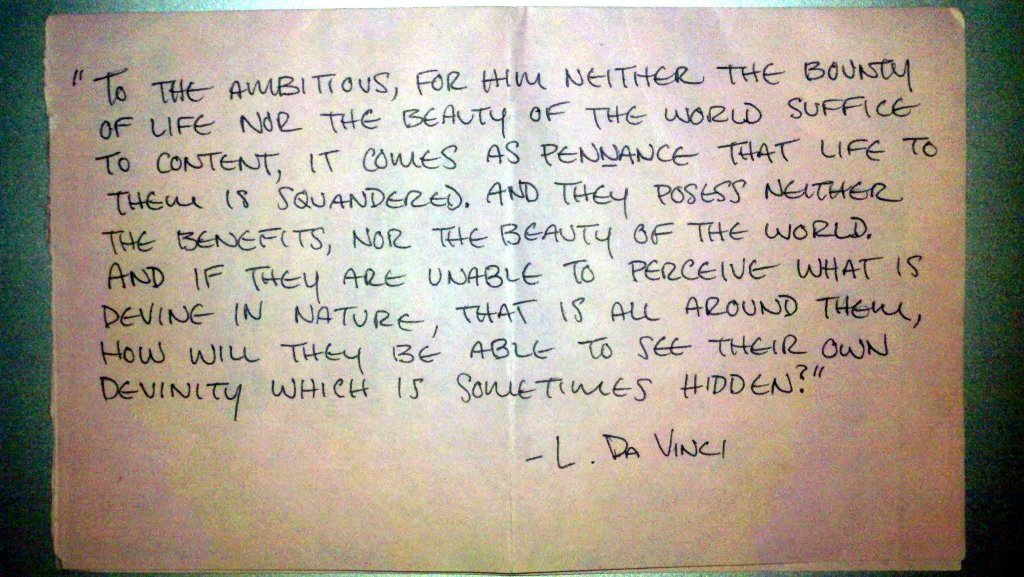 "To THE AMBITIOUS, FOR HIM NEITHER THE BOUNTY
OF LIFE NOR THE BEAUTY OF THE WORLD SUFFICE
TO CONTENT, IT COMES AS PENNANCE THAT LIFE TO
THEM IS SQUANDERED. AND THEY POSESS NEITHER
THE BENEFITS, NOR THE BEAUTY OF THE WORLD.
AND IF THEY ARE UNABLE TO PERCEIVE WHAT IS
DEVINE IN NATURE, THAT IS ALL AROUND THEM,
HOW WILL THEY BE ABLE TO SEE THEIR OWN
DEVINITY WHICH IS SOMETIMES HIDDEN?"
- L. DA VINCI